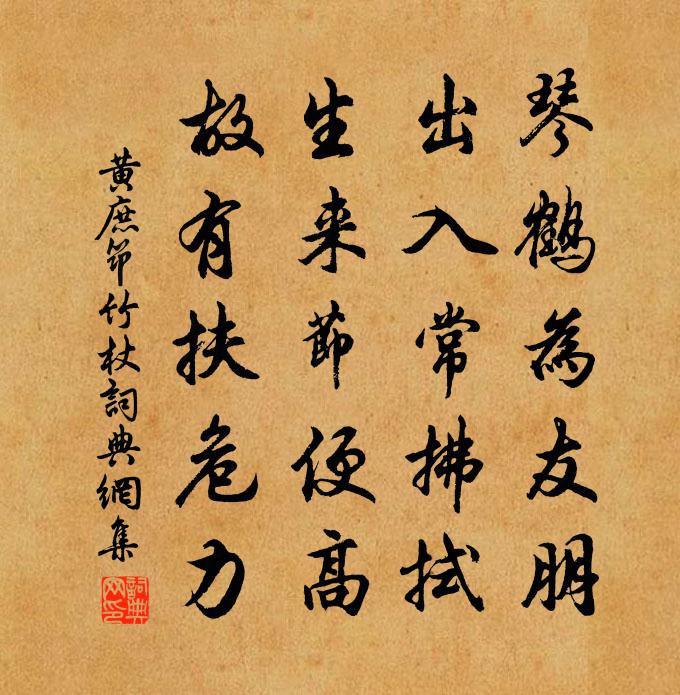 琴鶴為友朋
出入常拂拭
生来節便高
故有扶危力
黃庶筇竹杖詞典網集
詞典網印